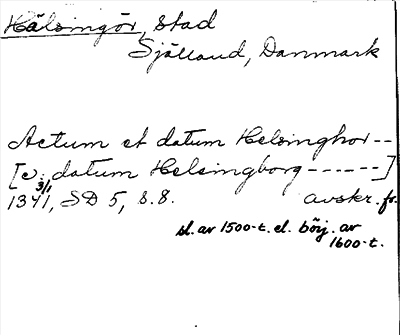 Hälsingör, stad
Själland, Danmark
Actum et datum Helsinghor--
[v: datum Helsingborg------]
1341 3/1, SD 5, s. 8. avskr. fr.
sl. av 1500-t. el. börj. av
1600-t.